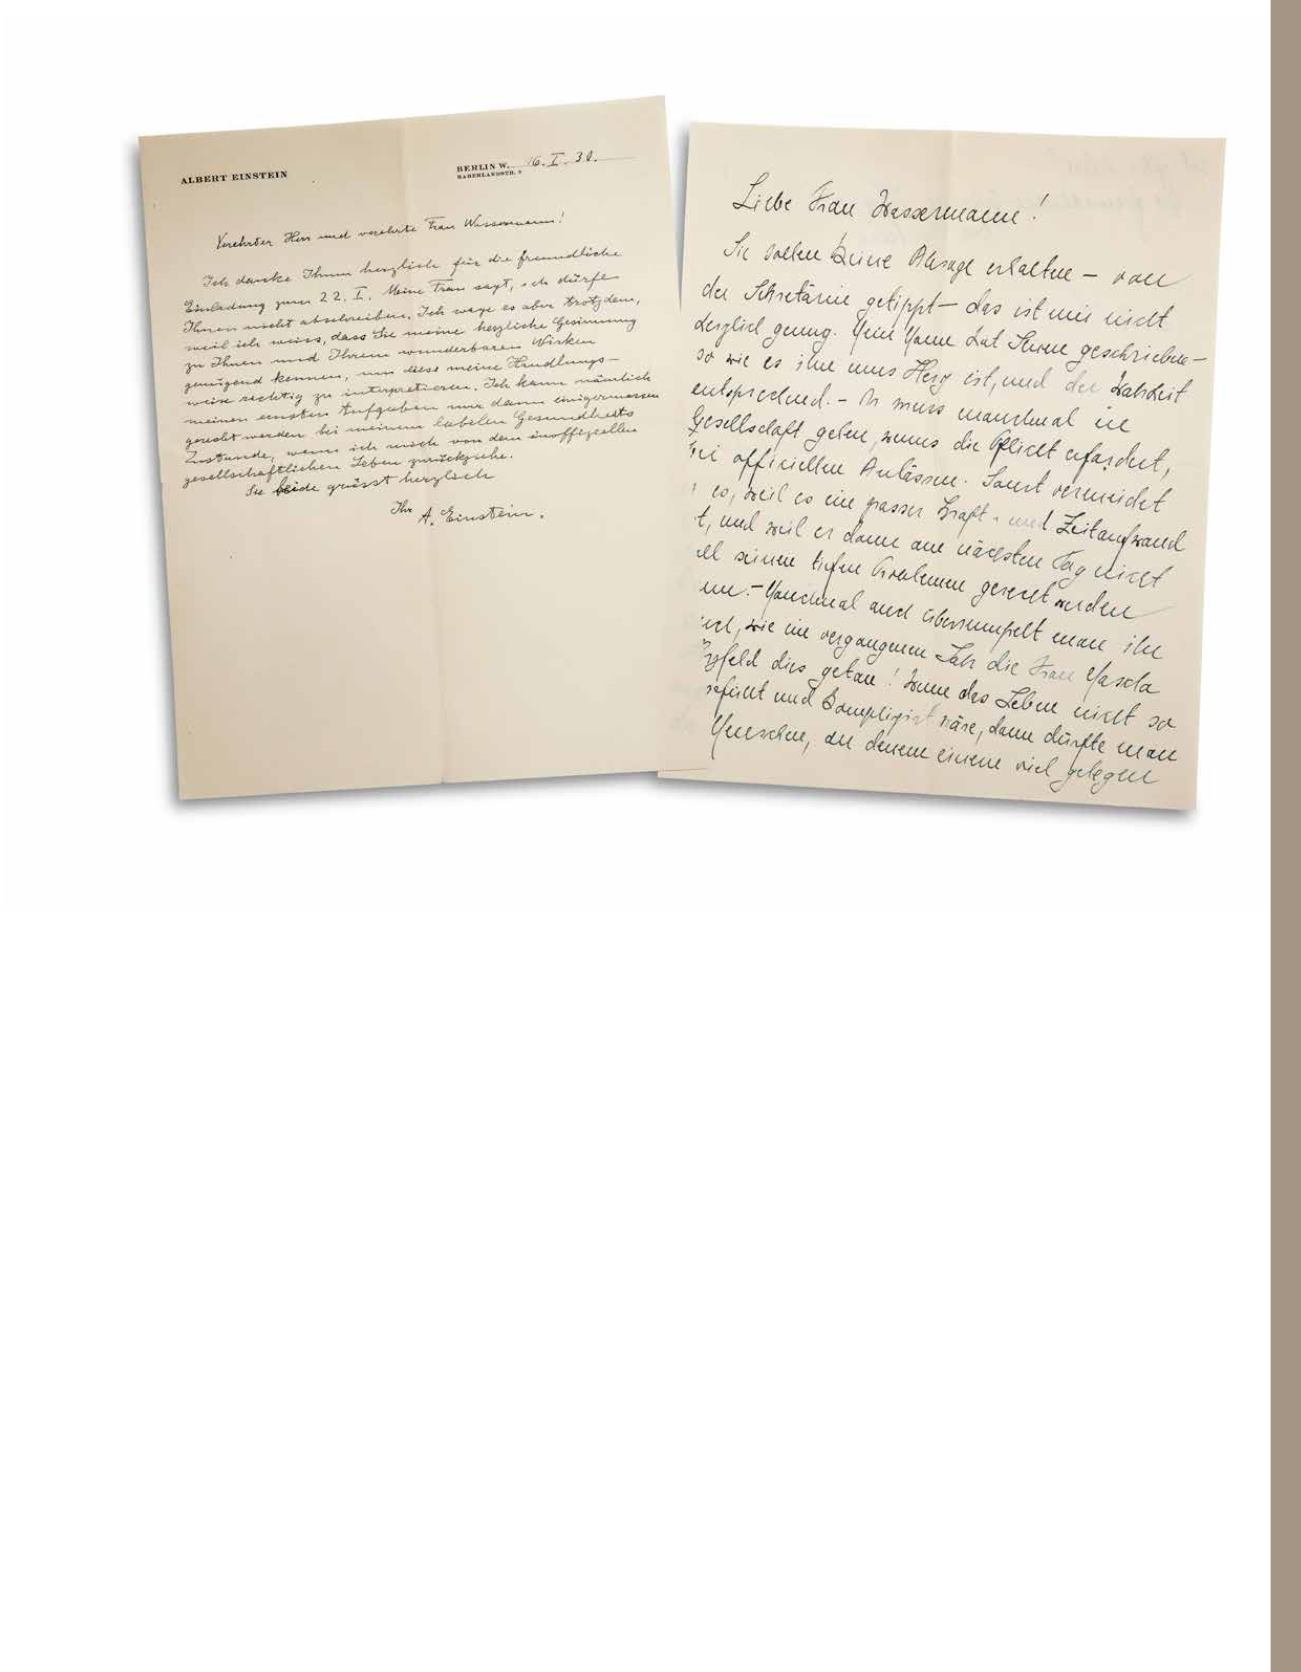 ALBERT EINSTEIN
BERLIN W. 16. I. 30.
HABERLANDSTR. 5
Verehrter Herr und verehrte Frau Wassermann!
Ich danke Ihnen herzlich für die freundliche
Einladung zum 22. I. Meine Frau sagt, ich dürfe
Ihnen nicht abschreiben. Ich wage es aber trotzdem,
weil ich weiss, dass Sie meine herzliche Gesinnung
zu Ihnen und Ihrem wunderbaren Wirken
genügend kennen, um diese meine Handlungs-
weise richtig zu interpretieren. Ich kann nämlich
meinen ernsten Aufgaben nur dann einigermassen
gerecht werden bei meinem labilen Gesundheits
Zustande, wenn ich mich von dem inoffiziellen
gesellschaftlichen Leben zurückziehe.
Sie beide grüsst herzlich
Ihr
A. Einstein.
Liebe Frau Wassermann!
Sie sollen keine Absage erhalten – von
der Sekretärin getippt – das ist mir nicht
herzlich genug. Mein Mann hat Ihnen geschrieben –
so wie es ihm ums Herz ist, und der Wahrheit
entsprechend. – Er muss manchmal in
Gesellschaft gehen, wenns die Pflicht erfordert,
officiellen Anlässen. Sonst vermeidet
es, weil es ein grosser Kraft- und Zeitaufwand
t, und weil er dann am nächsten Tag nicht
ll seinen tiefen Problemen gerecht werden
nn. – Manchmal auch überrumpelt man ihn
, wie im vergangenen Jahr die Frau
feld dies getan! Wenn das Leben nicht so
und kompliziert wäre, dann dürfte man
Menschen, an denen einem viel gelegen